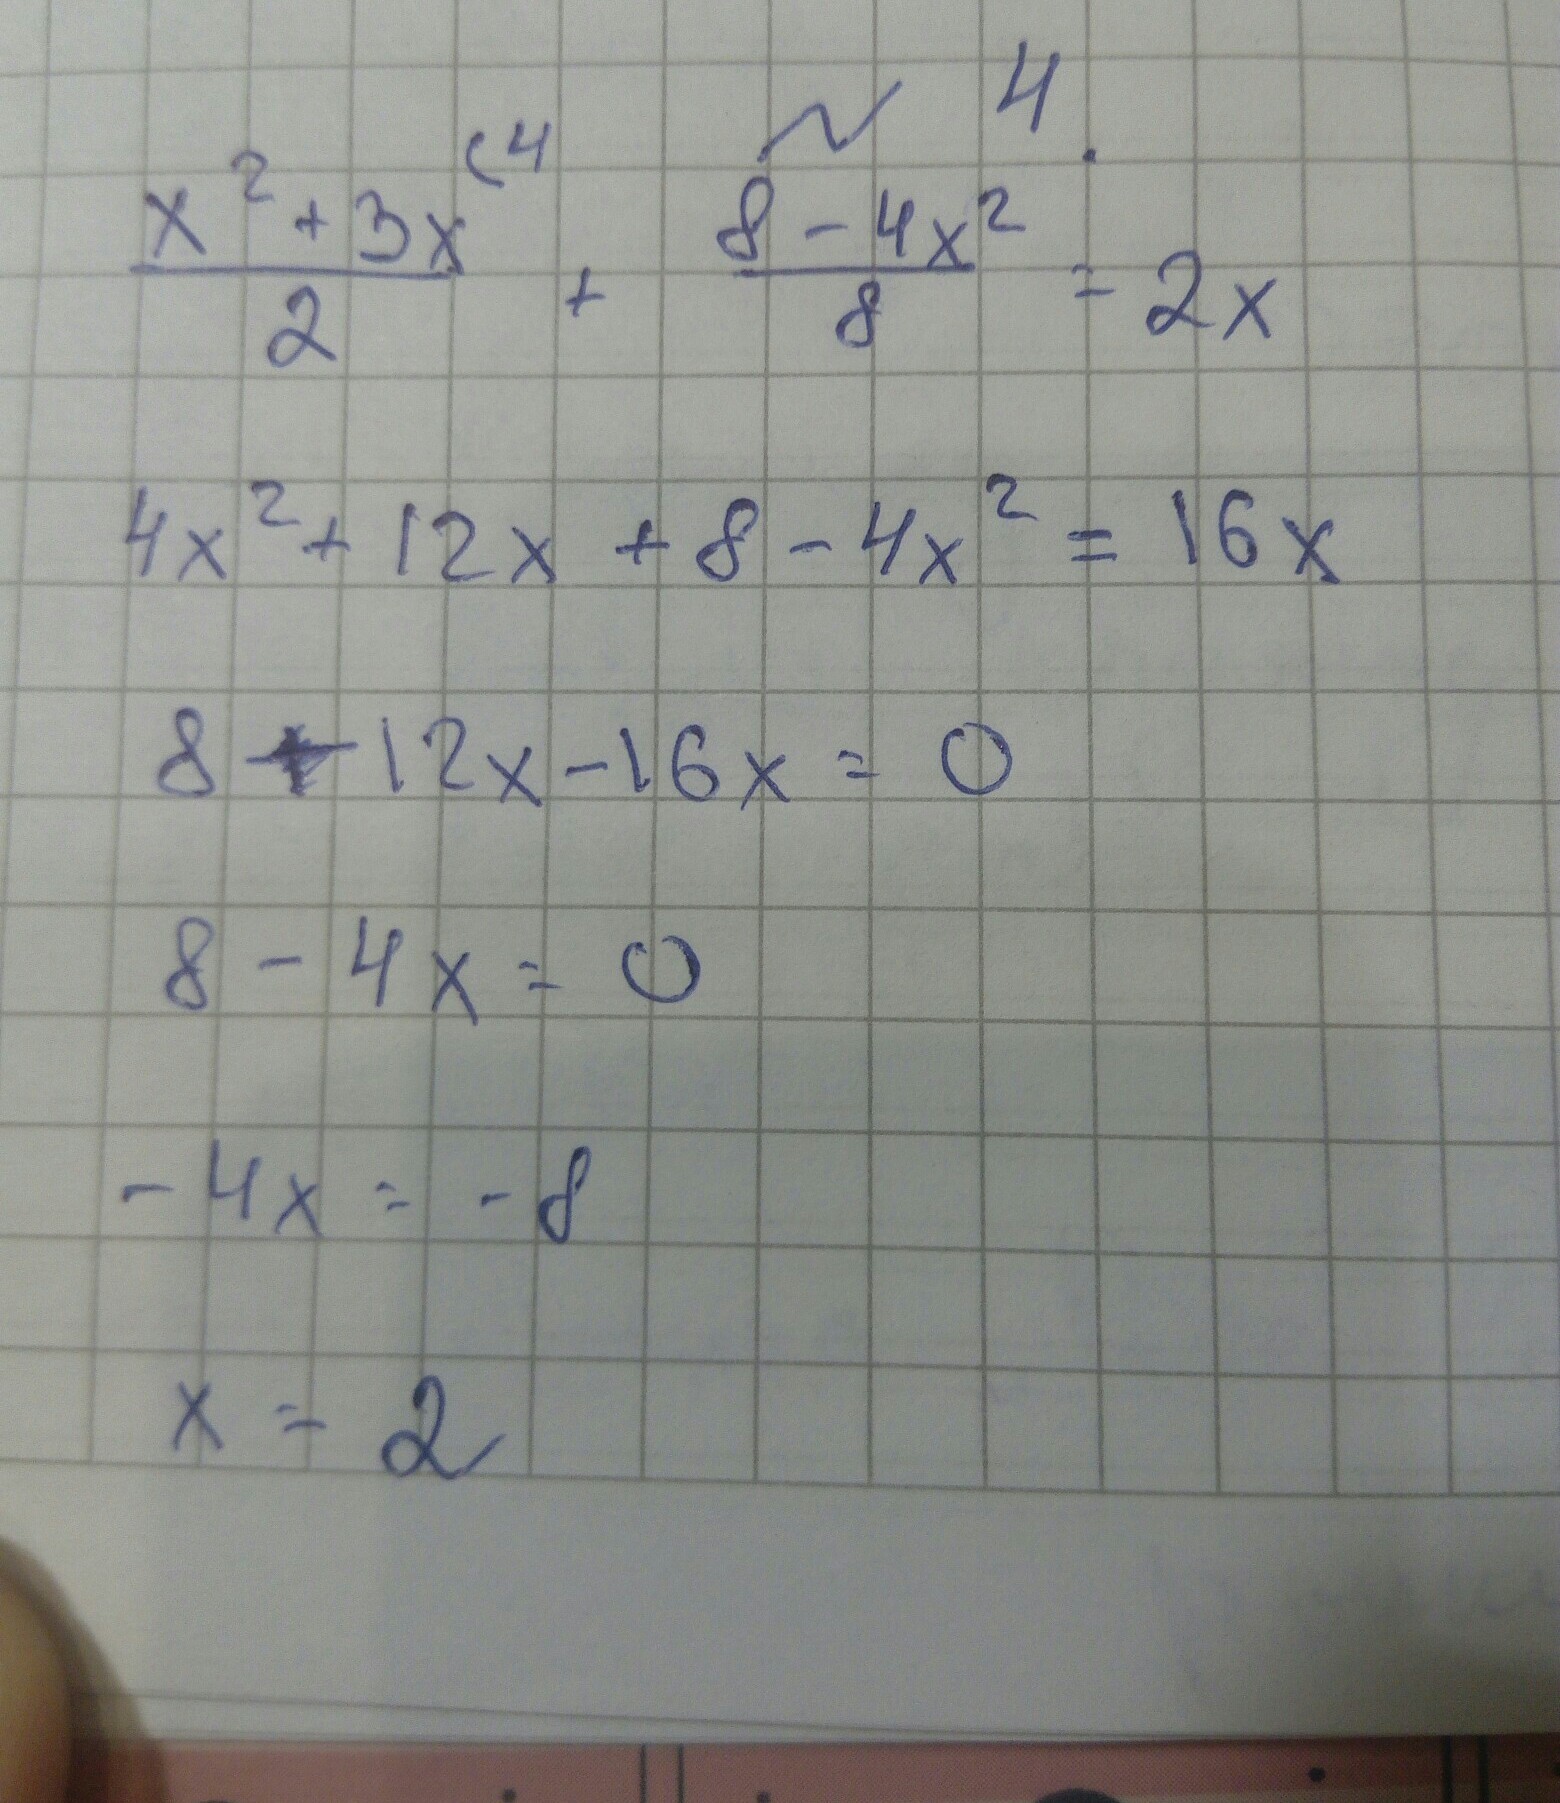 № 4.
(x² + 3x)/2 ⁽⁴ + (8 - 4x²)/8 = 2x
4x² + 12x + 8 - 4x² = 16x
8 + 12x - 16x = 0
8 - 4x = 0
- 4x = - 8
x = 2